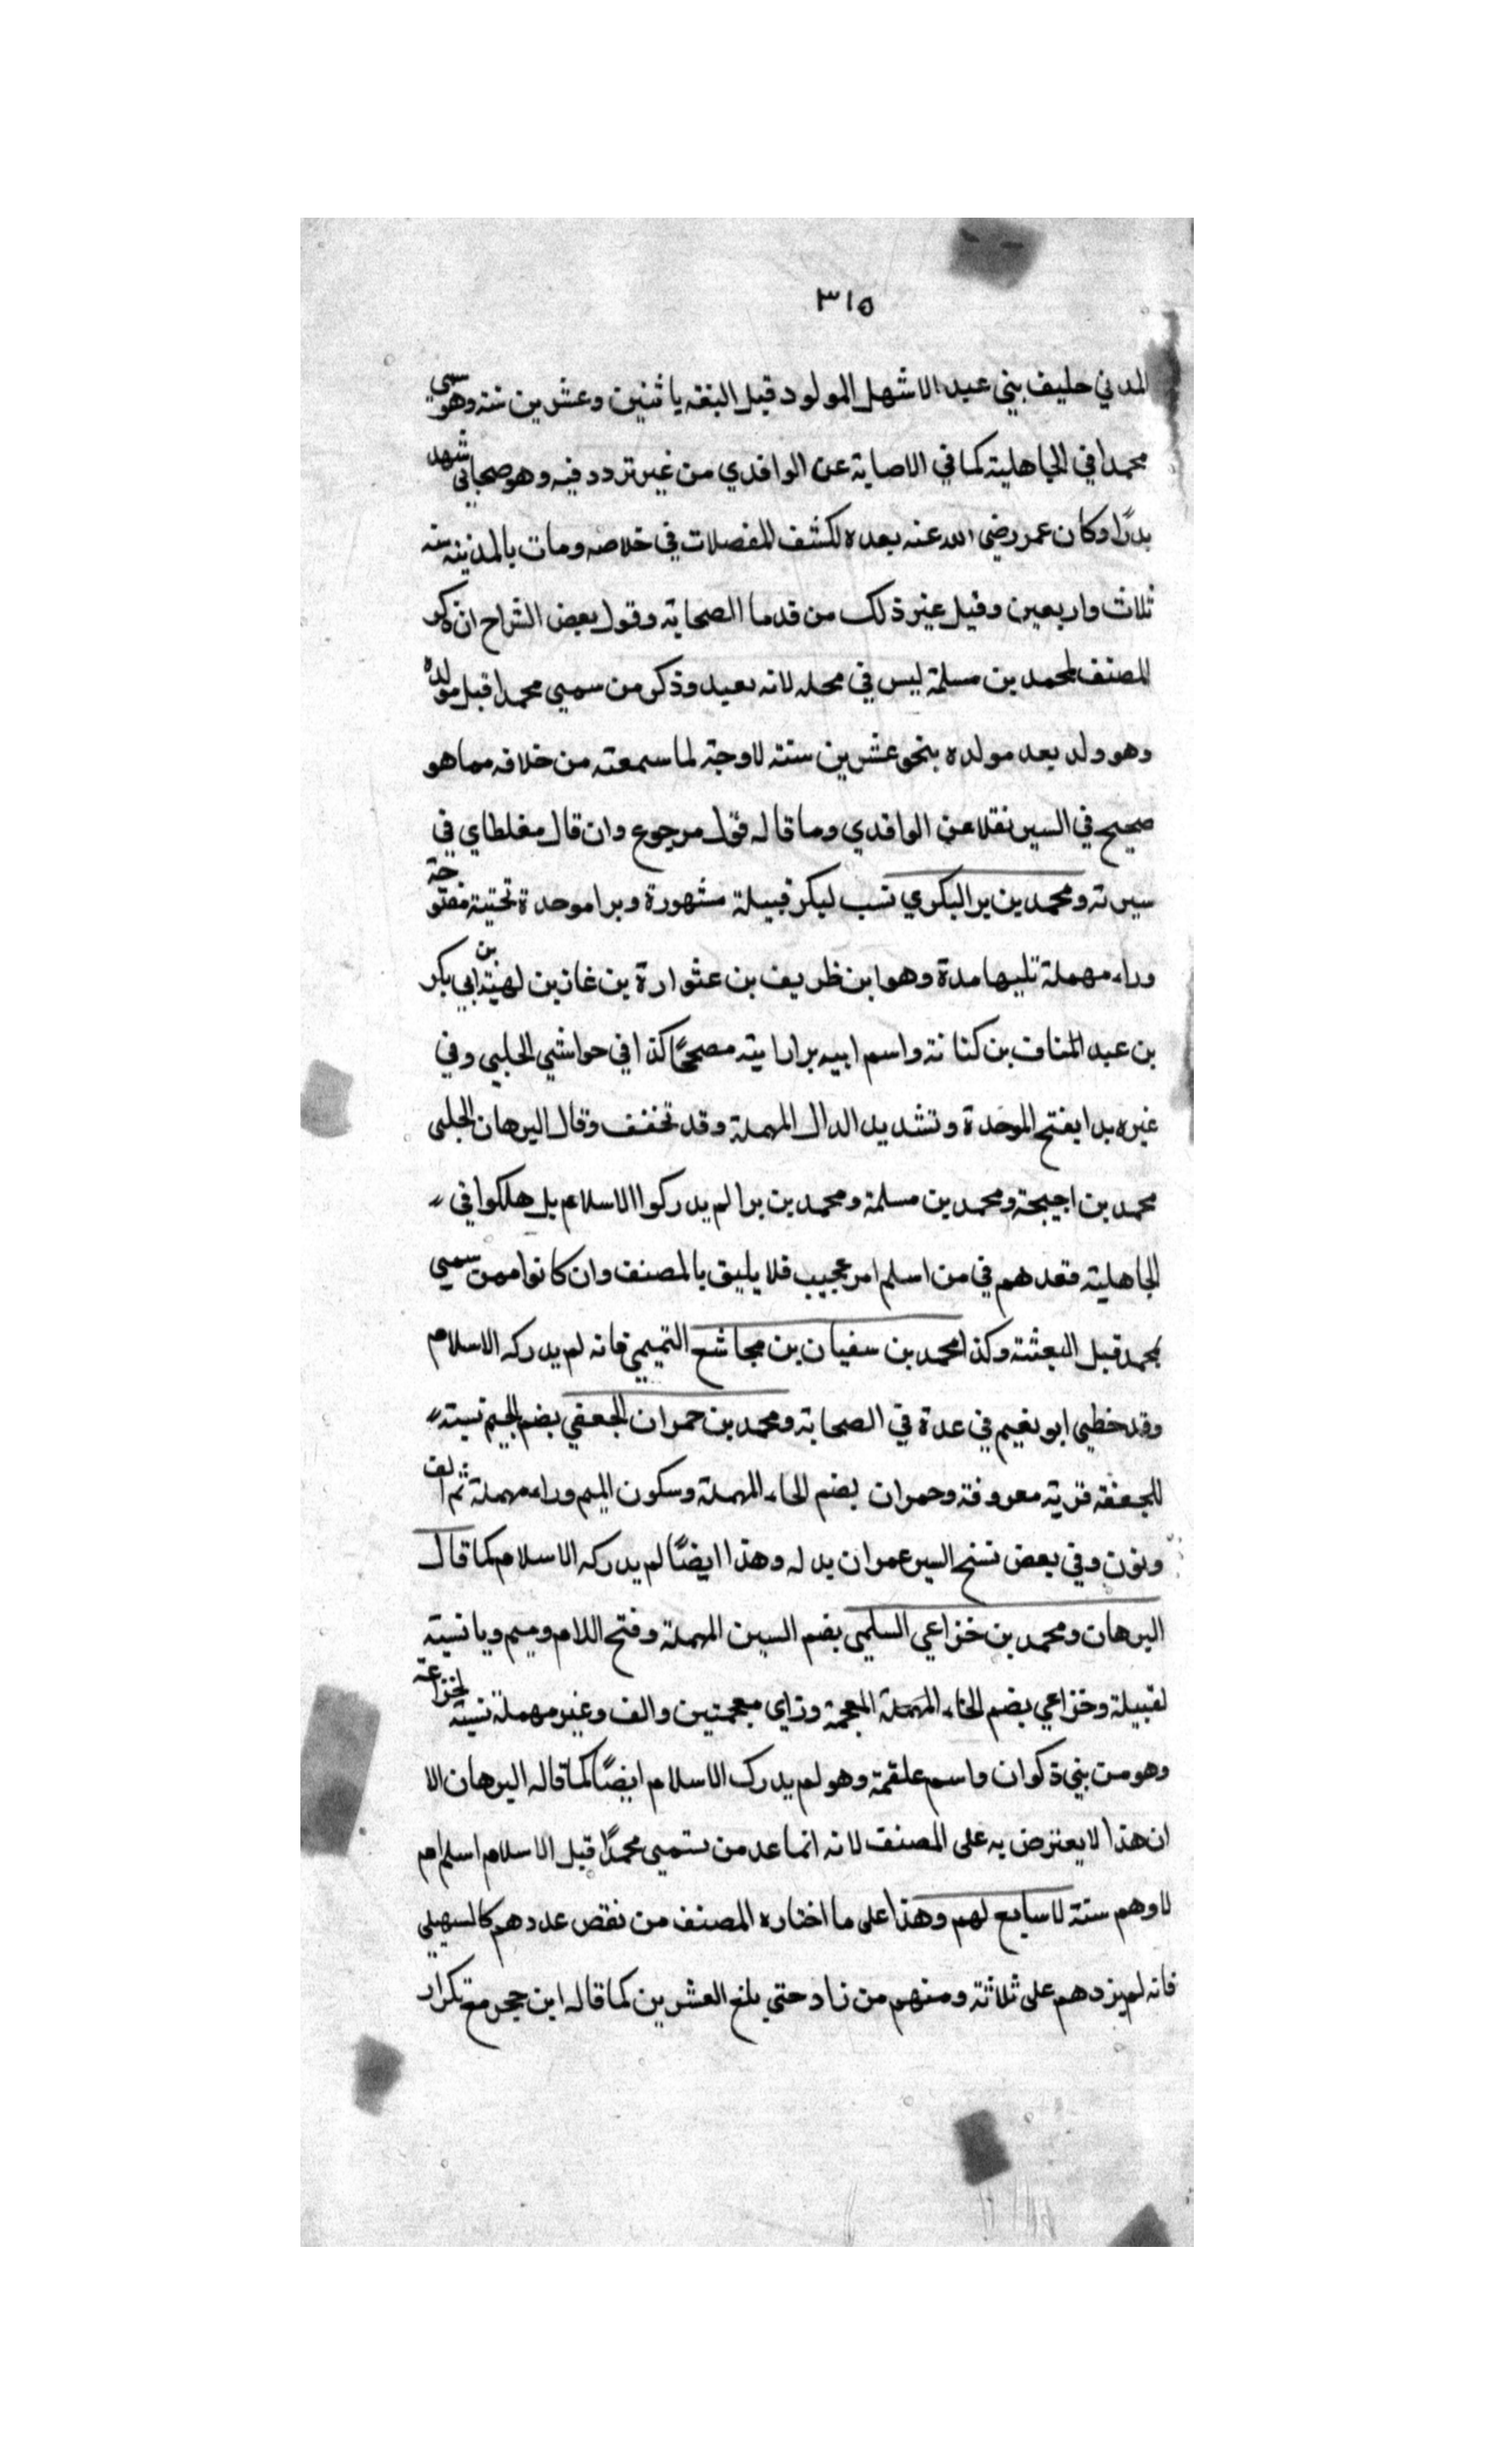 ٣١٥
المدني حليف بني عبد الاشهل المولود قبل البغثه باثنين وعشرين سنه وهو سمي
محمدا في الجاهلية كما في الاصابة عن الواقدي من غير تردد فيه وهو صحابي شهد
بدرًا وكان عمر رضي الله عنه بعده لكشف المفصلات في خلاصه ومات بالمدينه سنه
ثلاث واربعين وقيل غير ذلك من قدما الصحابة وقول بعض الشراح ان ذكر
المصنف لمحمد بن مسلمة ليس في محله لانه بعيد وذكر من سمي محمدا قبل مولده
وهو ولد بعد مولده بنحو عشرين سنة لا وجة لما سمعته من خلافه مما هو
صحيح في السير نقلا عن الواقدي وما قاله قول مرجوع وان قال مغلطاي في
سيرته ومحمد بن برا البكري نسب لبكر قبيلة مشهورة وبرا موحدة تحتية مفتوحة
وراء مهملة تليها مدة وهو ابن ظريف بن عثوارة بن غانر بن لهية بن ابي بكر
بن عبد المناف بن كنانة واسم ابيه برا رايته مصححًا كذا في حواشي الحلبي وفي
غيره بدا بفتح الموحدة وتشديد الدال المهملة وقد تخفف وقال البرهان الحلبى
محمد بن اجيحة ومحمد بن مسلمة ومحمد بن برا لم يدركوا الاسلام بل هلكوا في
الجاهلية فعدهم في من اسلم امر عجيب فلا يليق بالمصنف وان كانوا ممن سمي
بمحمد قبل البعثة وكذا محمد بن سفيان بن مجاشع التميمي فانه لم يدركه الاسلام
وقد خطي ابو نعيم في عدة في الصحابة ومحمد بن حمران الجعفي بضم الجيم نسبة
للجعفة قرية معروفة وحمران بضم الحاء المهملة وسكون الميم وراء مهملة ثم الف
ونون وفي بعض نسخ السير عمران بدله وهذا ايضًا لم يدركه الاسلام كما قال
البرهان ومحمد بن خزاعي السلمي بضم السين المهملة وفتح اللام وميم ويا نسبة
لقبيلة وخزاعي بضم الخاء المهملة المعجمة وزاي معجمتين والف وغير مهملة نسبة لخزاعة
وهو من بني ذكوان واسم علقمة وهو لم يدرك الاسلام ايضًا كما قاله البرهان الا
ان هذا لا يعترض به على المصنف لانه انما عد من تسمي محمدًا قبل الاسلام اسلم ام
لا وهم ستة لا سابع لهم وهذا على ما اختاره المصنف من نقص عددهم كالسهيلي
فانه لم يزدهم على ثلاثة ومنهم من زاد حتي بلغ العشرين كما قاله ابن حجر مع تكرار